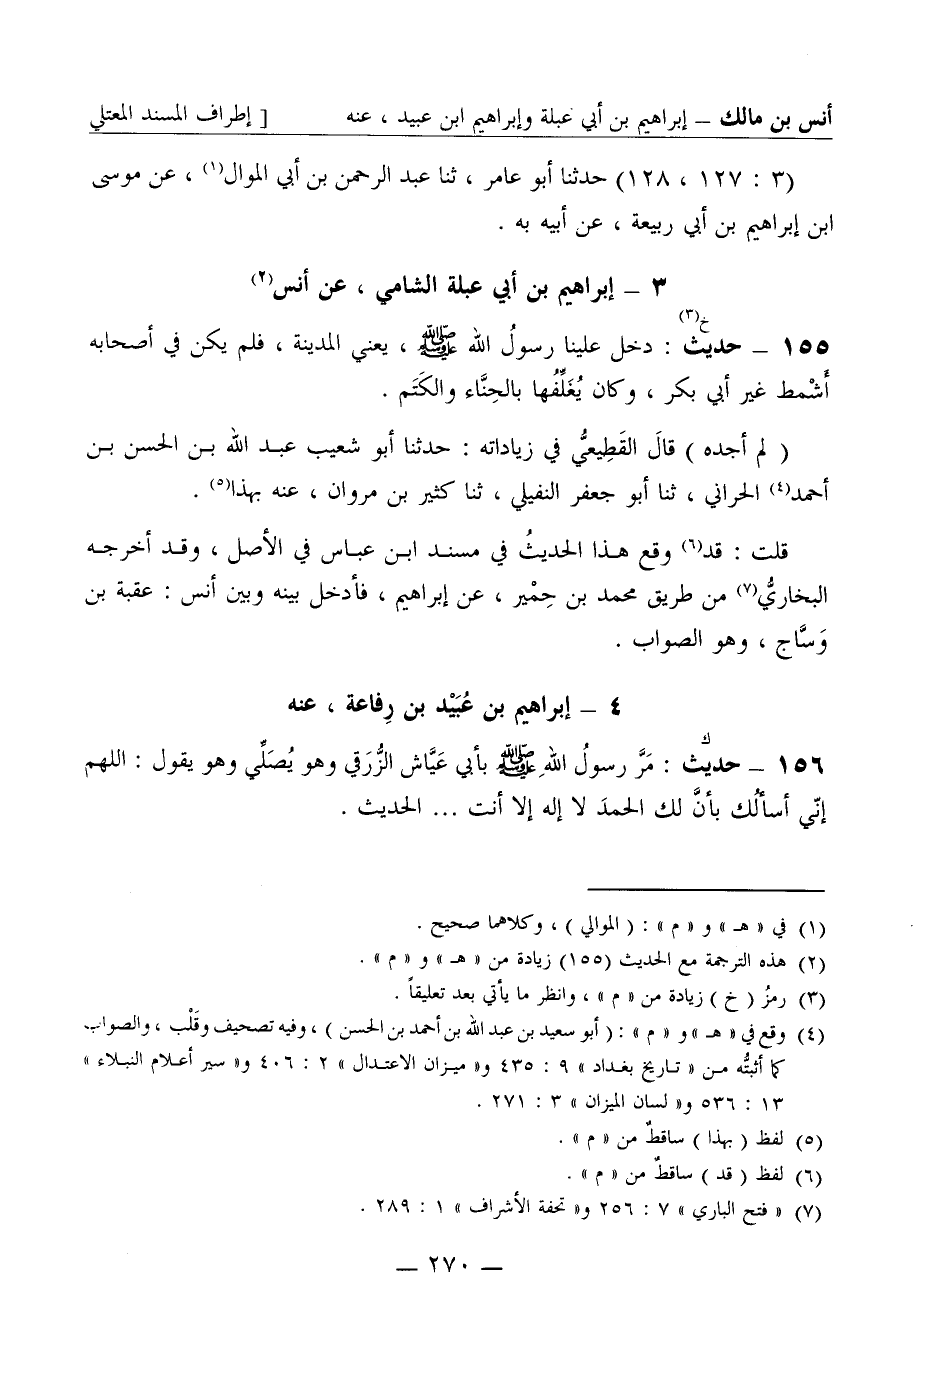 أنس بن مالك – إبراهيم بن أبي عبلة وإبراهيم ابن عبيد ، عنه [ إطراف المسند المعتلي
(٣ : ١٢٧ ، ١٢٨) حدثنا أبو عامر ، ثنا عبد الرحمن بن أبي الموال(١) ، عن موسى
ابن إبراهيم بن أبي ربيعة ، عن أبيه به .
٣ – إبراهيم بن أبي عبلة الشامي ، عن أنس(٢)
خ(٣)
١٥٥ – حديث : دخل علينا رسولُ الله ﷺ ، يعني المدينة ، فلم يكن في أصحابه
أَشْمط غير أبي بكر ، وكان يُغَلِّفُها بالحِنَّاء والكَتَم .
( لم أجده ) قالَ القَطِيعيُّ في زياداته : حدثنا أبو شعيب عبد الله بن الحسن بن
أحمد(٤) الحراني ، ثنا أبو جعفر النفيلي ، ثنا كثير بن مروان ، عنه بهذا(٥) .
قلت : قد(٦) وقع هذا الحديثُ في مسند ابن عباس في الأصل ، وقد أخرجه
البخاريُّ(٧) من طريق محمد بن حِمْير ، عن إبراهيم ، فأدخل بينه وبين أنس : عقبة بن
وَسَّاج ، وهو الصواب .
٤ – إبراهيم بن عُبَيْد بن رِفاعة ، عنه
ك
١٥٦ – حديث : مَرَّ رسولُ اللهِ ﷺ بأبي عَيَّاش الزُّرَقي وهو يُصَلِّي وهو يقول : اللهم
إنّي أسألُك بأنَّ لك الحمدَ لا إله إلا أنت ... الحديث .
(١) في « هـ » و « م » : ( الموالي ) ، وكلاهما صحيح .
(٢) هذه الترجمة مع الحديث (١٥٥) زيادة من « هـ » و « م » .
(٣) رمزُ ( خ ) زيادة من « م » ، وانظر ما يأتي بعد تعليقاً .
(٤) وقع في « هـ » و « م » : ( أبو سعيد بن عبد الله بن أحمد بن الحسن ) ، وفيه تصحيف وقَلْب ، والصواب
كما أثبتُّه من « تاريخ بغداد » ٩ : ٤٣٥ و« ميزان الاعتدال » ٢ : ٤٠٦ و« سير أعلام النبلاء »
١٣ : ٥٣٦ و« لسان الميزان » ٣ : ٢٧١ .
(٥) لفظ ( بهذا ) ساقطٌ من « م » .
(٦) لفظ ( قد ) ساقطٌ من « م » .
(٧) « فتح الباري » ٧ : ٢٥٦ و« تحفة الأشراف » ١ : ٢٨٩ .
– ٢٧٠ –